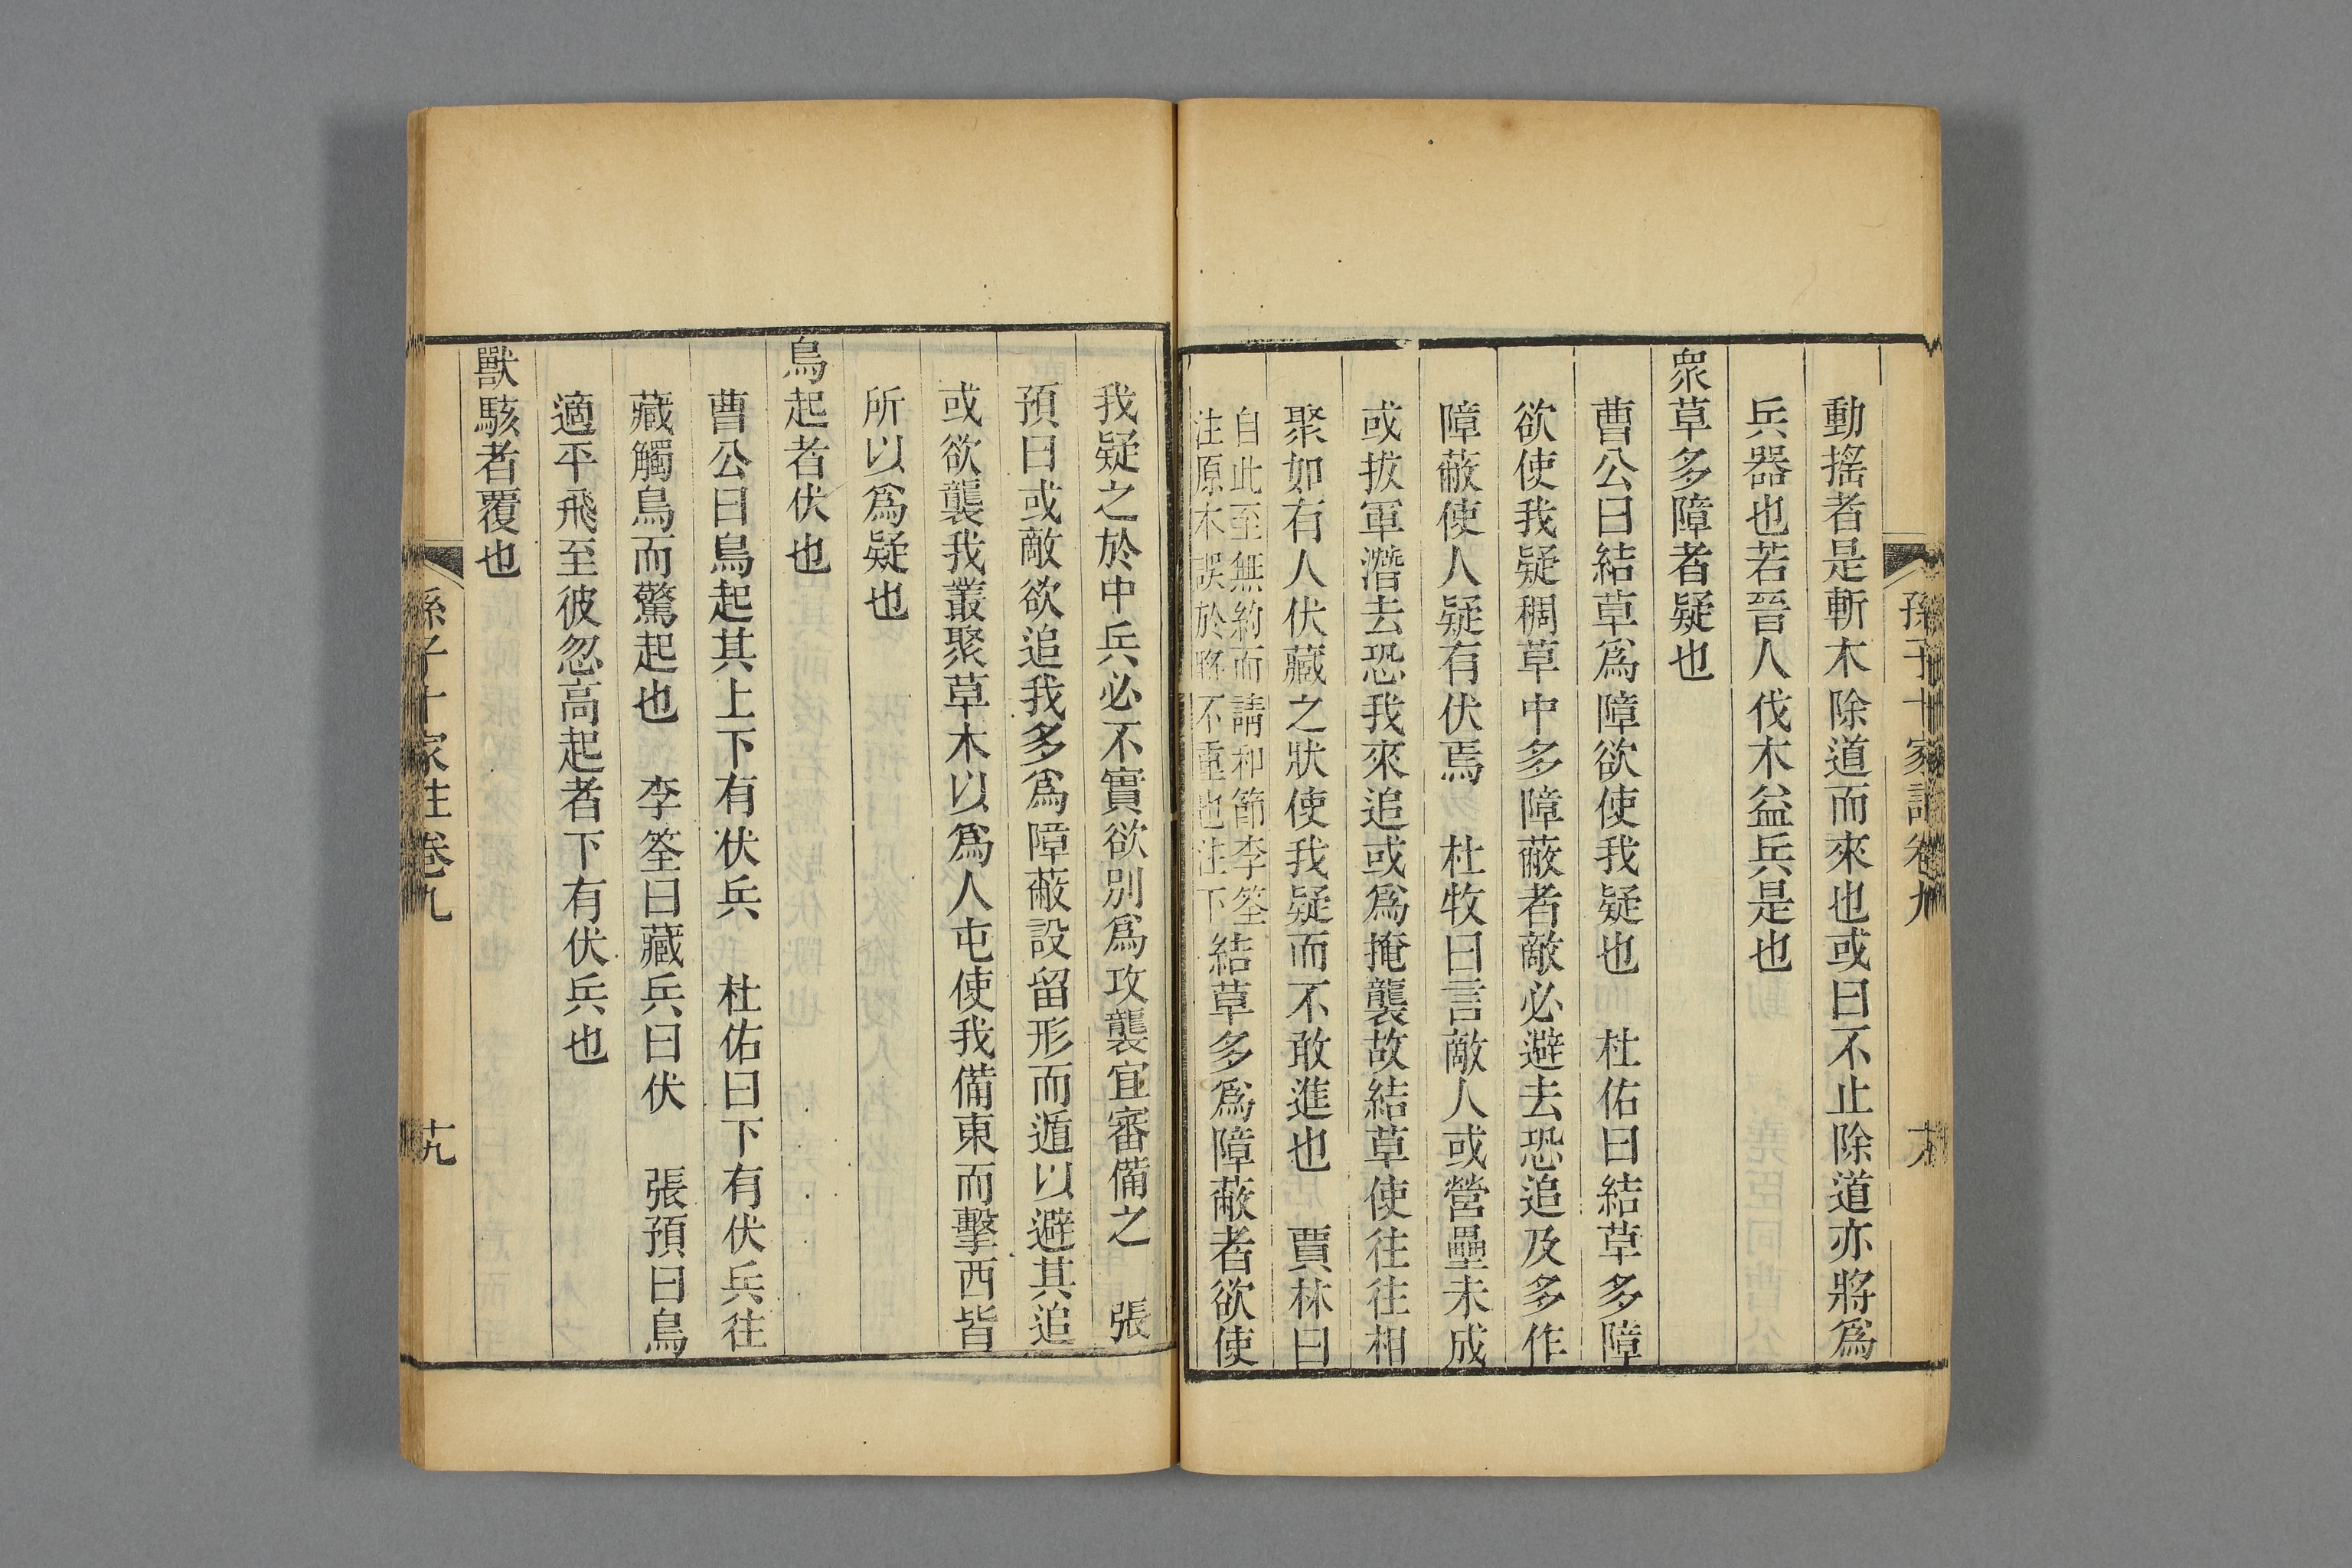 孫子十家註卷九
動搖者是斬木除道而來也或曰不止除道亦將爲
兵器也若晉人伐木益兵是也
衆草多障者疑也
曹公曰結草爲障欲使我疑也　杜佑曰結草多障
欲使我疑稠草中多障蔽者敵必避去恐追及多作
障蔽使人疑有伏焉　杜牧曰言敵人或營壘未成
或拔軍潛去恐我來追或爲掩襲故結草使往往相
聚如有人伏藏之狀使我疑而不敢進也　賈林曰
自此至無約而請和節李筌
注原本誤於將不重也注下
結草多爲障蔽者欲使
我疑之於中兵必不實欲別爲攻襲宜審備之　張
預曰或敵欲追我多爲障蔽設留形而遁以避其追
或欲襲我叢聚草木以爲人屯使我備東而擊西皆
所以爲疑也
鳥起者伏也
曹公曰鳥起其上下有伏兵　杜佑曰下有伏兵往
藏觸鳥而驚起也　李筌曰藏兵曰伏　張預曰鳥
適平飛至彼忽高起者下有伏兵也
獸駭者覆也
孫子十家註卷九
十九